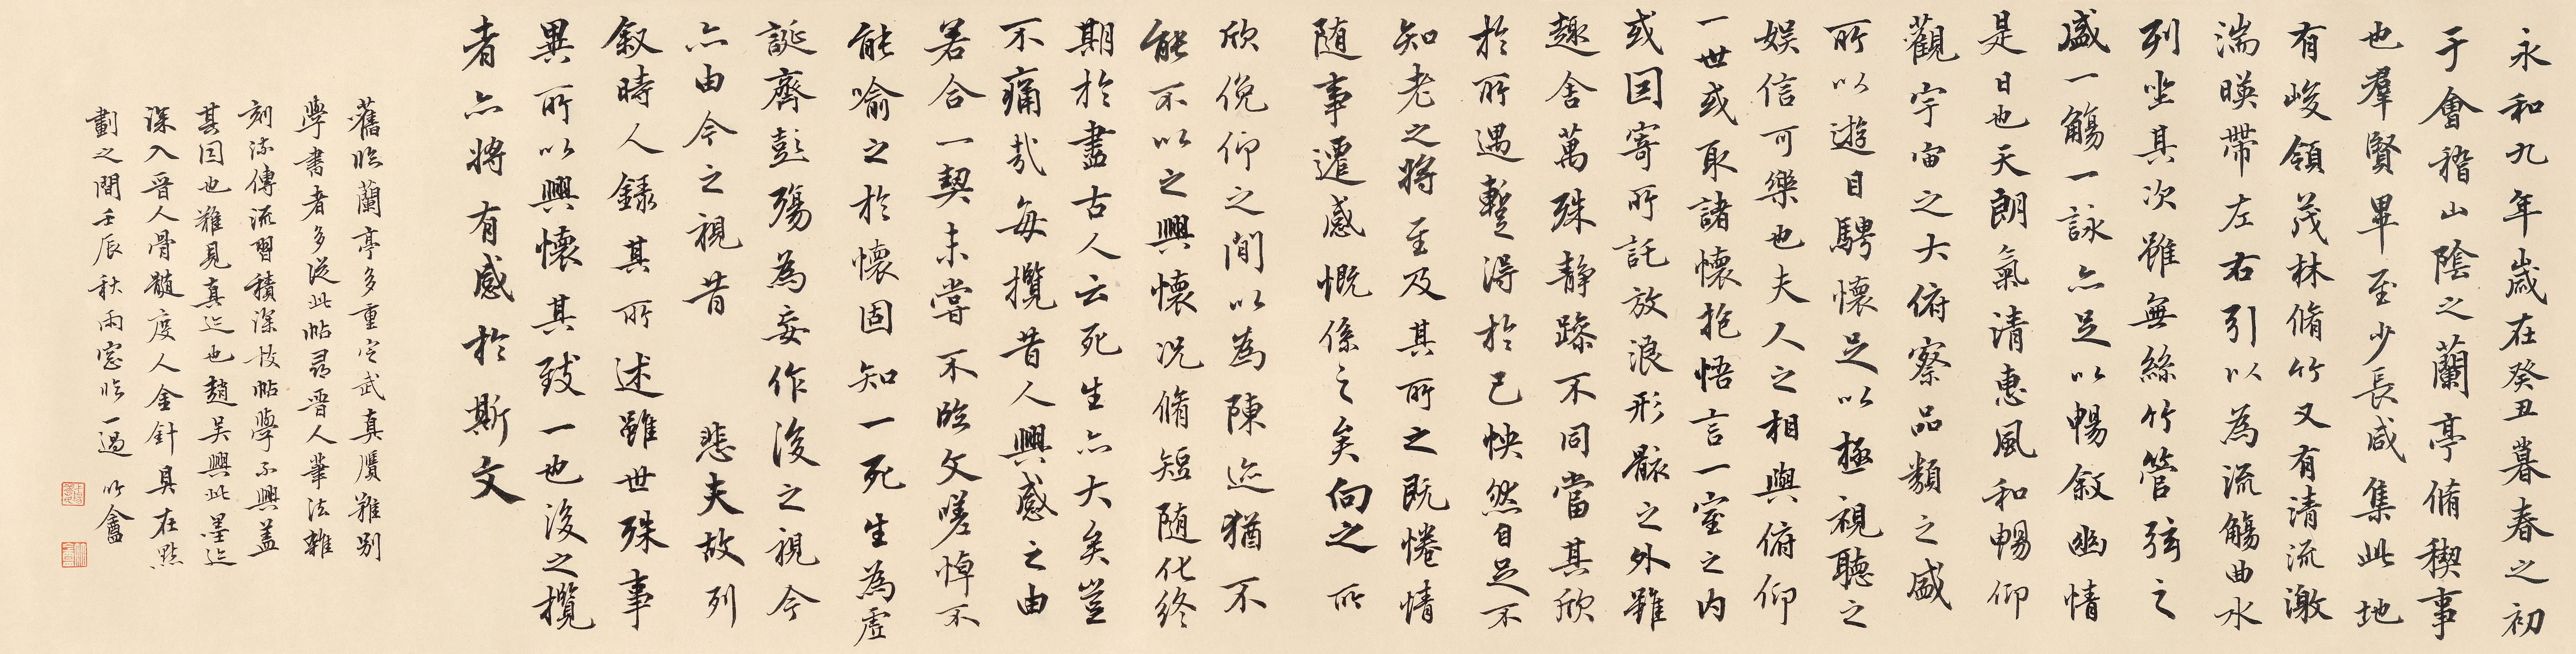 永和九年歲在癸丑暮春之初
于會稽山陰之蘭亭脩稧事
也羣賢畢至少長咸集此地
有峻領茂林脩竹又有清流激
湍暎帶左右引以為流觴曲水
列坐其次雖無絲竹管弦之
盛一觴一詠亦足以暢敘幽情
是日也天朗氣清惠風和暢仰
觀宇宙之大俯察品類之盛
所以遊目騁懷足以極視聽之
娛信可樂也夫人之相與俯仰
一世或取諸懷抱悟言一室之內
或因寄所託放浪形骸之外雖
趣舍萬殊靜躁不同當其欣
於所遇蹔得於己怏然自足不
知老之將至及其所之既惓情
隨事遷感慨係之矣向之所
欣俛仰之間以為陳迹猶不
能不以之興懷況脩短隨化終
期於盡古人云死生亦大矣豈
不痛哉每攬昔人興感之由
若合一契未嘗不臨文嗟悼不
能喻之於懷固知一死生為虛
誕齊彭殤為妄作後之視今
亦由今之視昔 悲夫故列
敘時人錄其所述雖世殊事
異所以興懷其致一也後之攬
者亦將有感於斯文
舊臨蘭亭多重定武真贗難別
學書者多從此帖尋晉人筆法雜
刻流傳流習積深故帖學不興蓋
其因也難見真迹也趙吳興此墨迹
深入晉人骨髓度人金針具在點
劃之間壬辰秋雨窗臨一過 竹盦